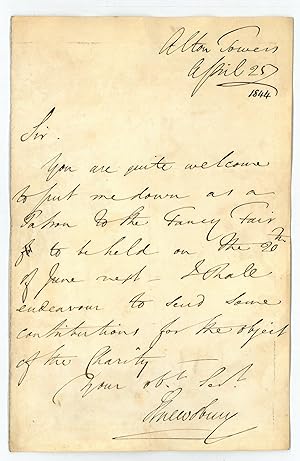 Alton Towers
April 25
1844
Sir.
You are quite welcome
to put me down as a
Patron to the Fancy Fair
to be held on the 20th
of June next - I shall
endeavour to send some
contributions for the object
of the Charity
Your obt. Sert
Shrewsbury